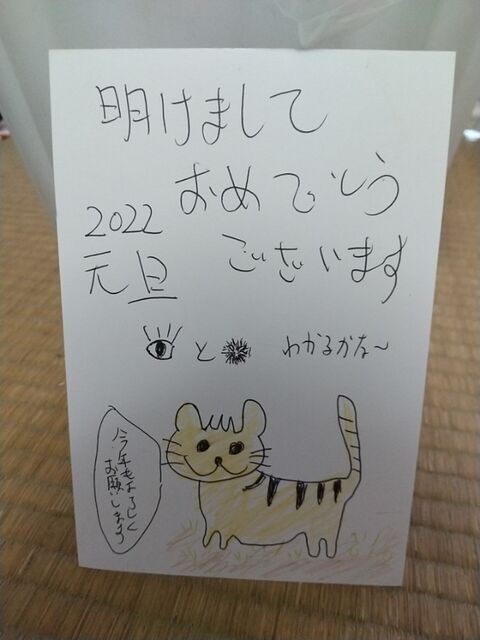 明けまして
おめでとう
ございます
2022
元旦
と わかるかな~
今年もよろしく
お願いします